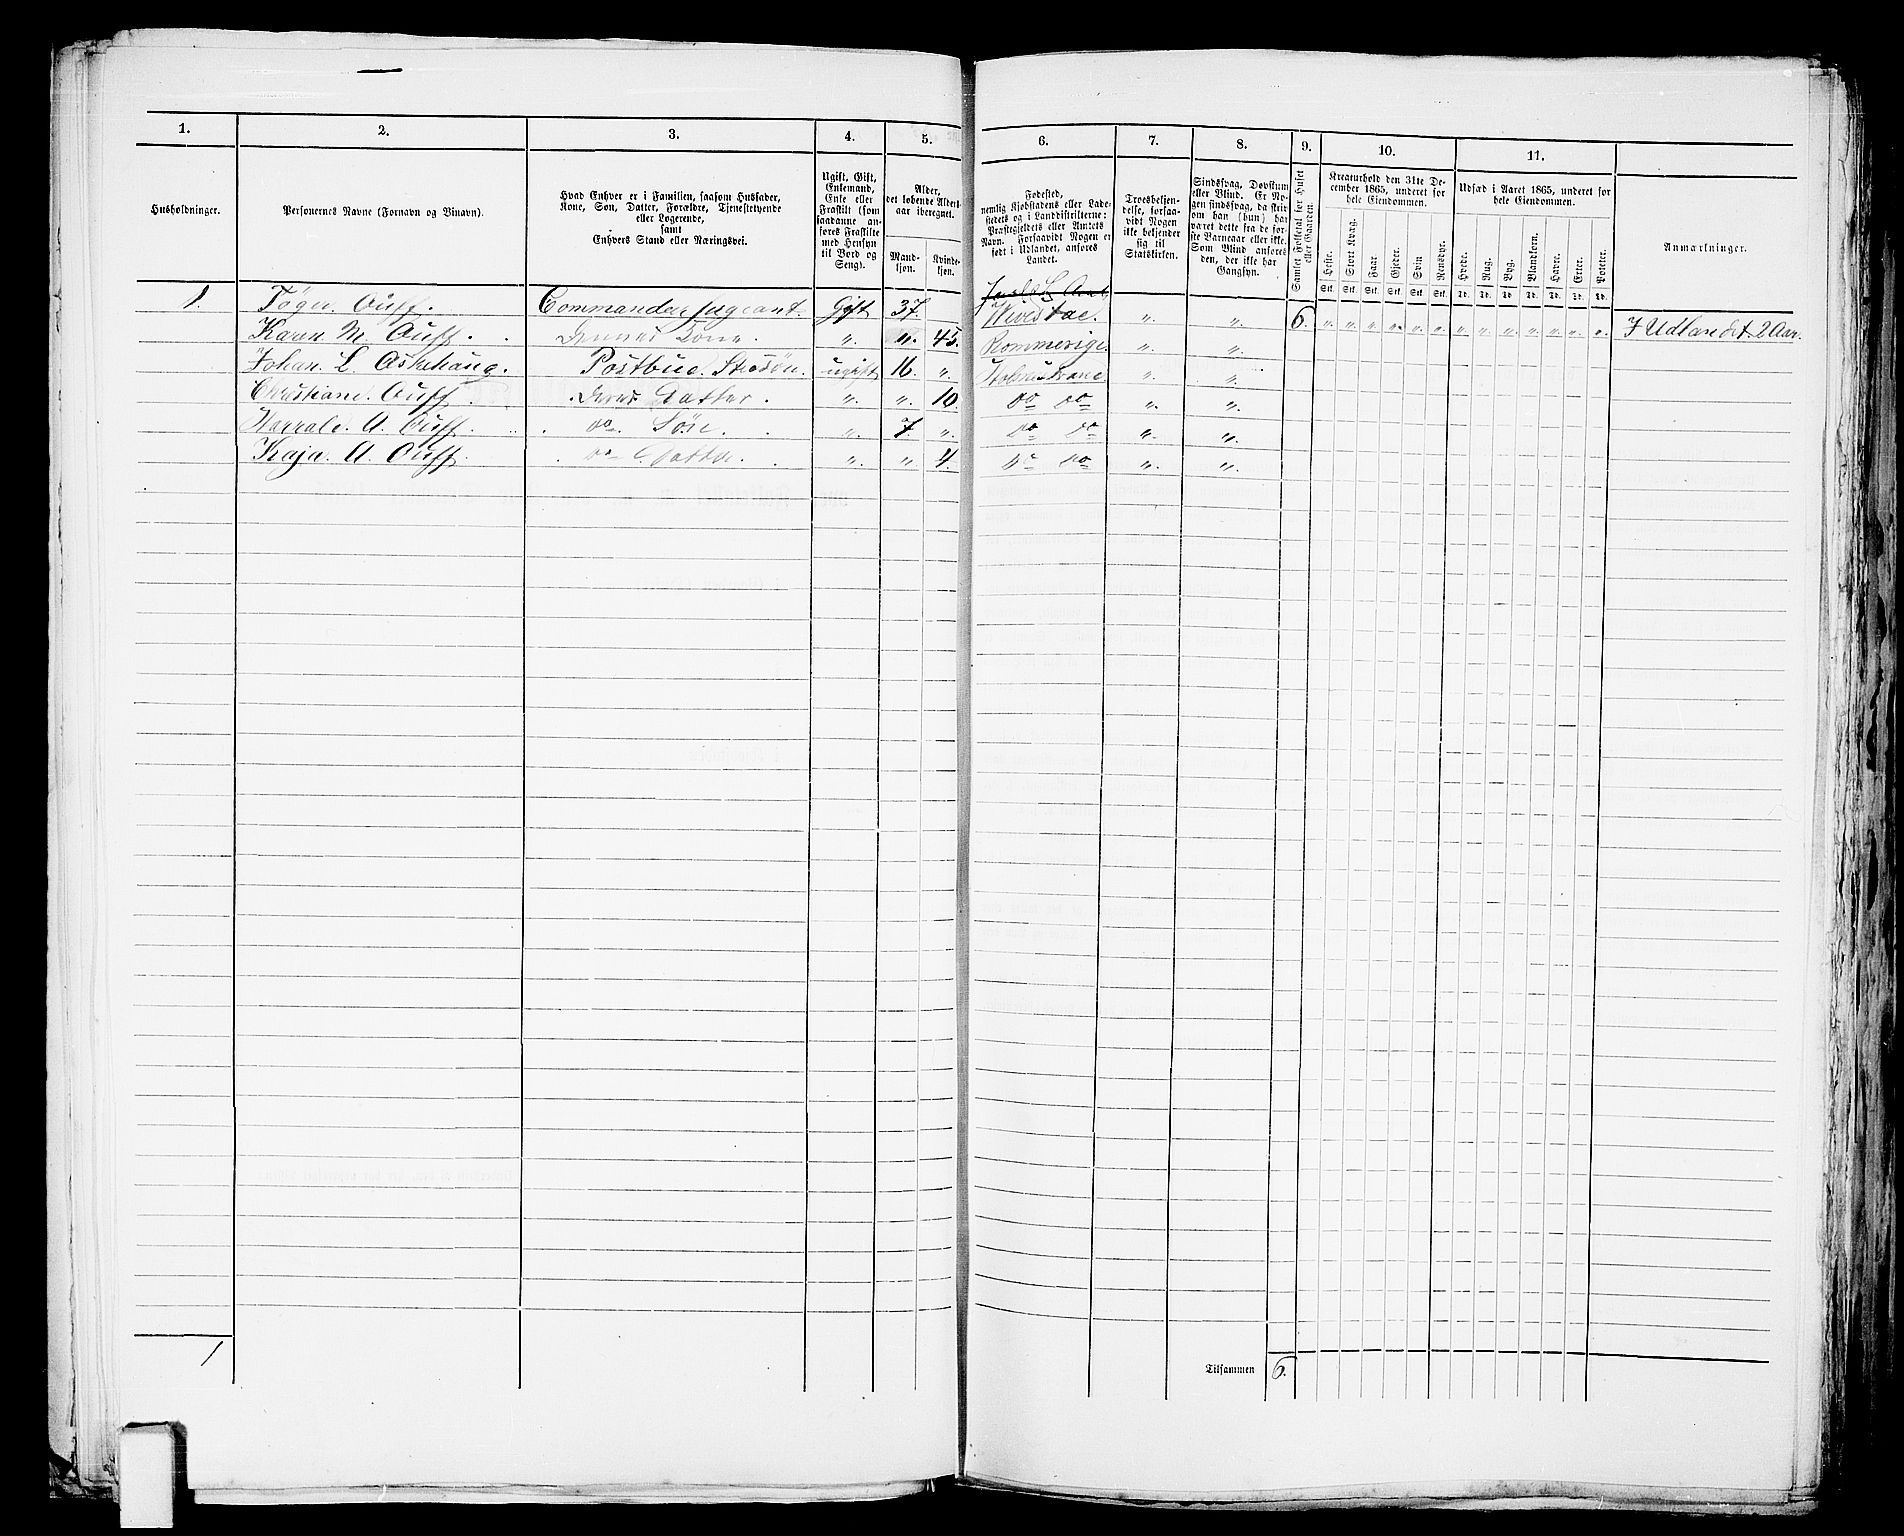 1. 2. 3. 4. 5. 6. 7. 8. 9. 10. 11.
Husholdninger.
Personernes Navne (Fornavn og Vinavn).
Hvad Enhver er i Familien, saasom Husfader,
Kone, Søn, Datter, Forældre, Tjenestetyende
eller Logerende,
samt
Enhvers Stand eller Næringsvei.
Ugift, Gift,
Enkemand,
Enke eller
Fraskilt (som
saadanne an-
føres Fraskilte
med Hensyn
til Bord og
Seng).
Alder,
det løbende Alders-
aar iberegnet.
Mand-
kjøn.
Kvinde-
kjøn.
Fødested,
nemlig Kjøbstadens eller Lade-
stedets og i Landdistrikterne:
Præstegjeldets eller Amtets
Navn. Forsaavidt Nogen er
født i Udlandet, anføres
Landet.
Troesbekjen-
delse, forsaa-
vidt Nogen
ikke bekjender
sig til
Statskirken.
Sindssvag, Døvstum
eller Blind. Er No-
gen sindssvag, da skri-
ves om han (hun) har
været dette fra de før-
ste Barneaar eller ikke.
Som Blind anføres
den, der ikke har
Gangsyn.
Samlet Folketal for Huset
eller Gaarden.
Kreaturhold den 31te De-
cember 1865, underet for
hele Eiendommen.
Heste. Stort Kvæg. Faar. Gjeder. Svin Rensdyr.
Stk. Stk. Stk. Stk. Stk. Stk.
Udsæd i Aaret 1865, underet for
hele Eiendommen.
Hvede. Rug. Byg. Blandkorn. Havre. Erter. Poteter.
Td. Td. Td. Td. Td. Td. Td.
Anmærkninger.
1. Tøger. Ouff. Commandeersergeant. Gift 37. 6. I Udlandet 2 Aar.
Karen M. Ouff. Dennes Kone " " 45. " "
Johan. L. Askehaug. Postbud. Stedsøn. ugift 16. " " "
Christiane. Ouff. Deres Datter. " " 10. Do Do " "
Harrald. A. Ouff. Do Søn. " 7. " Do Do " "
Kaja. A. Ouff. Do Datter. " " 4. Do Do " "
1
Tilsammen 6.